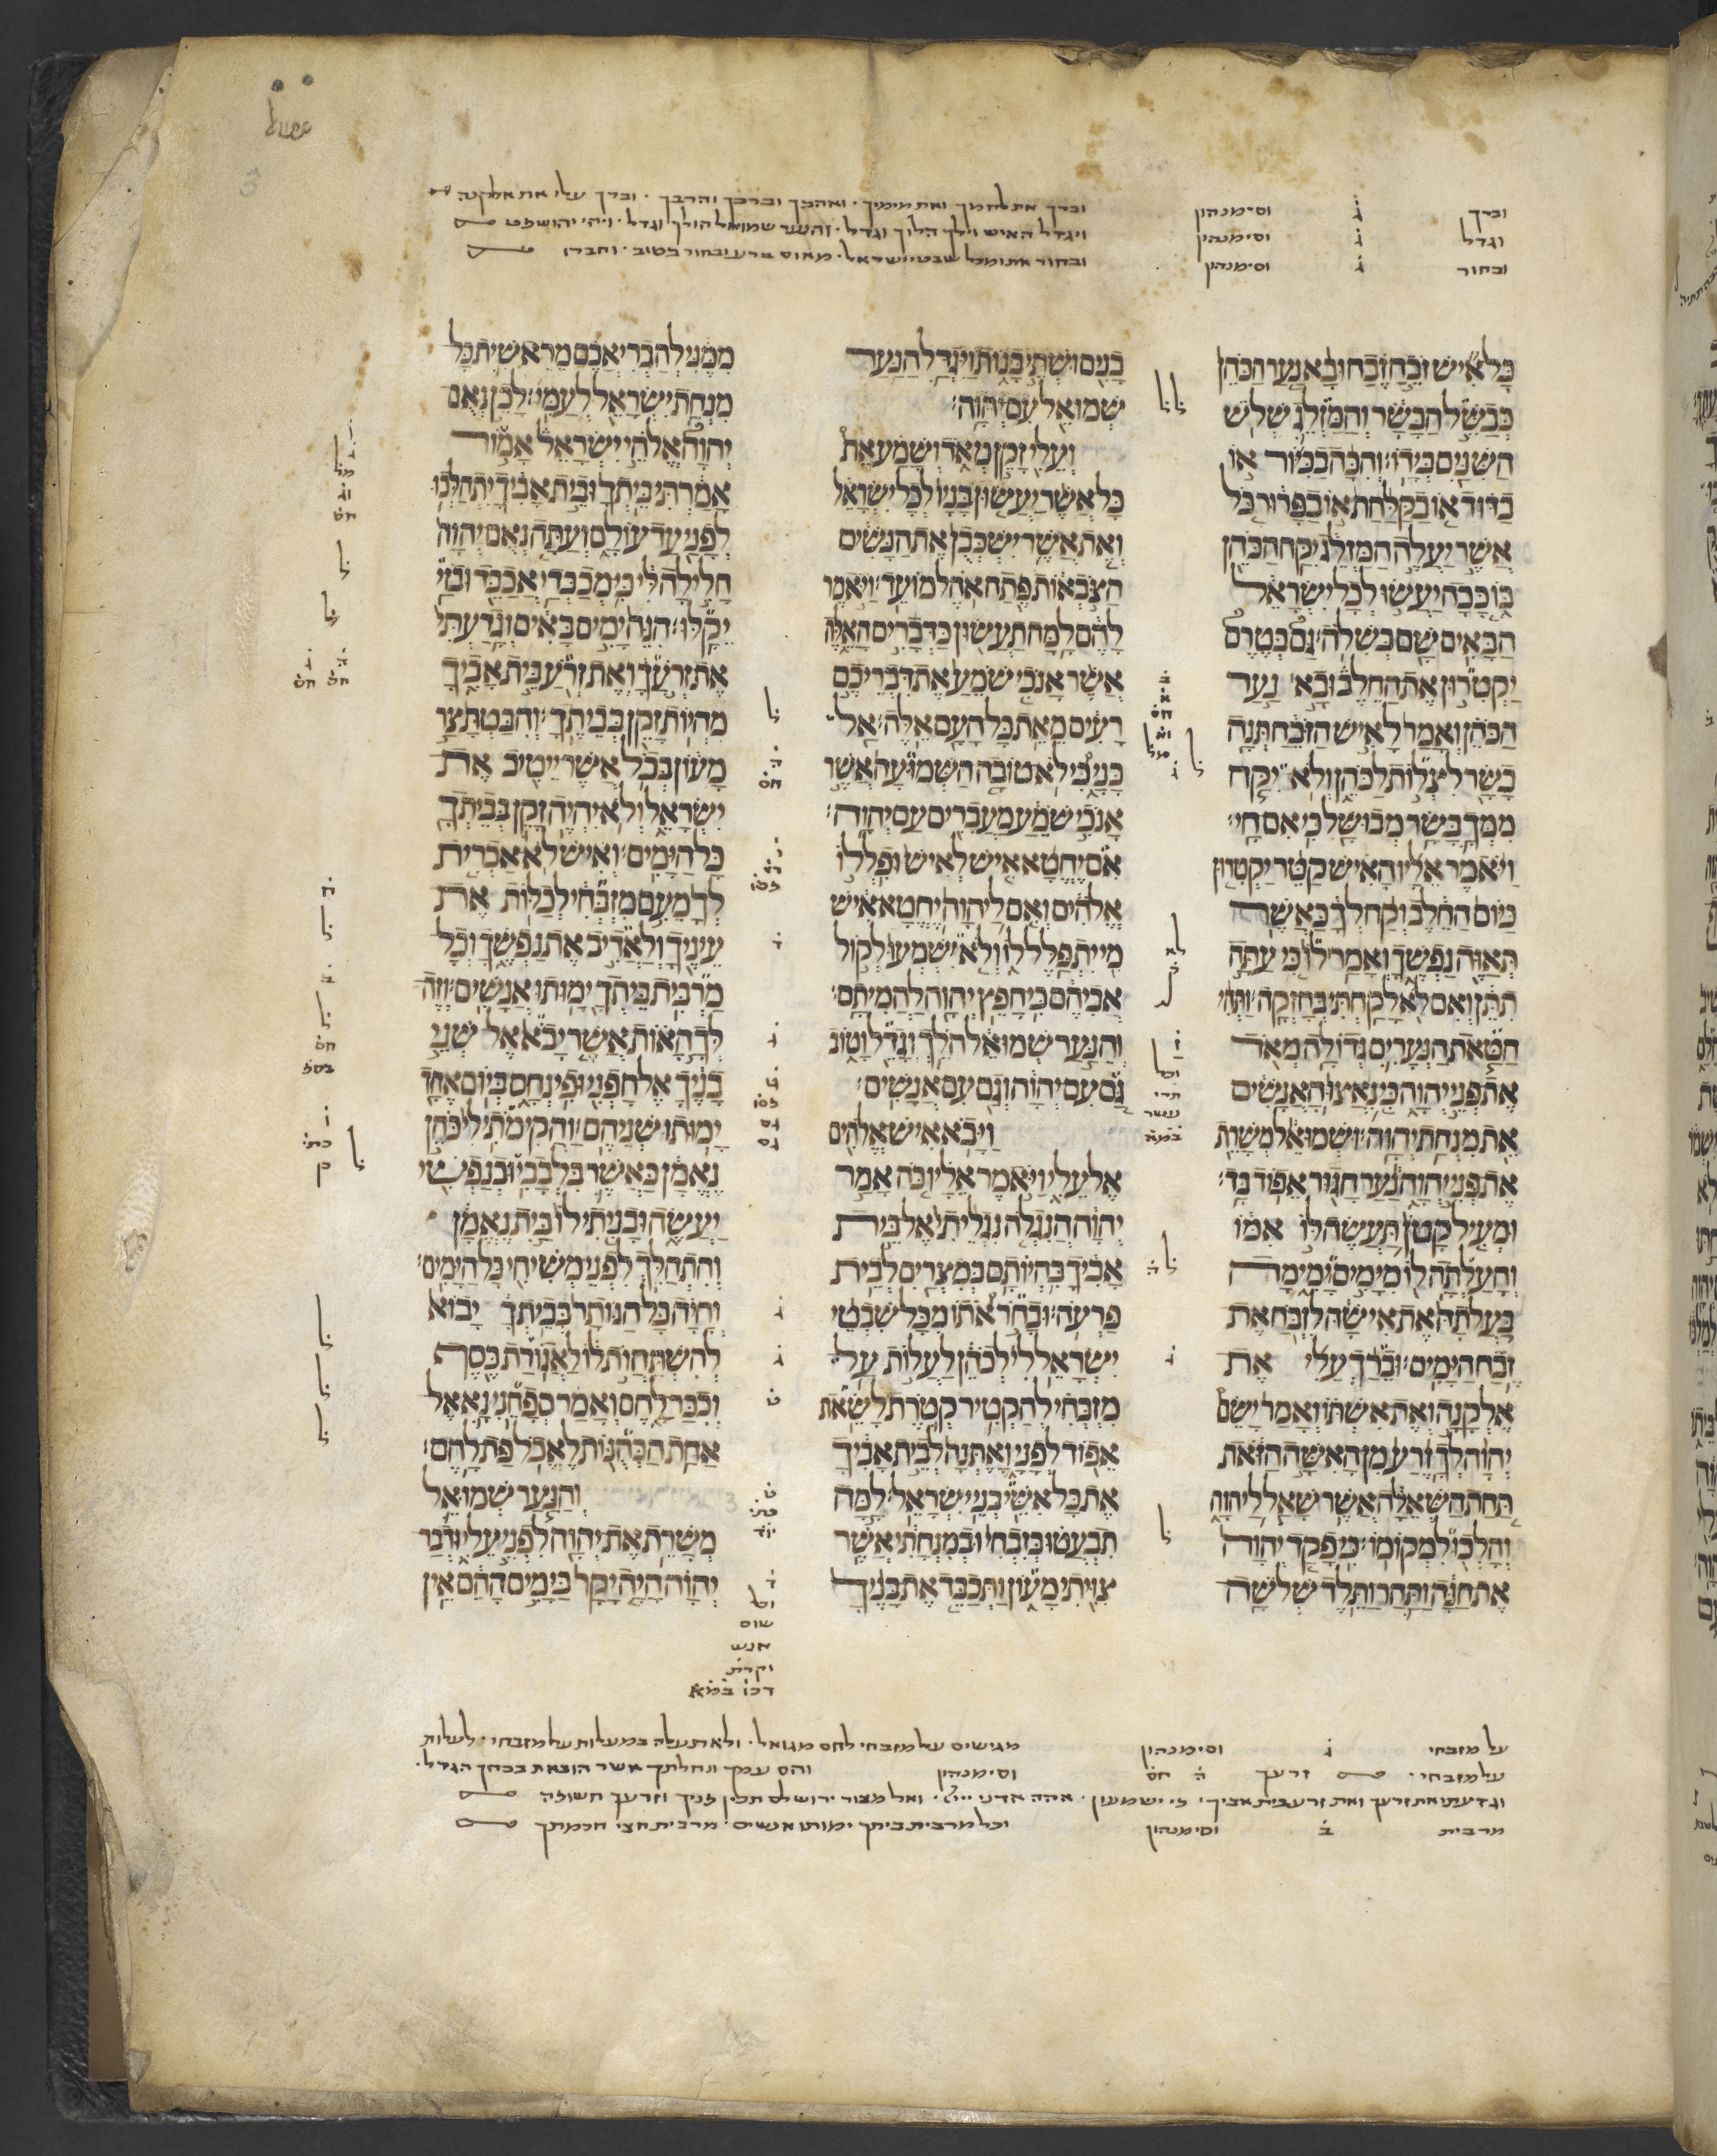 וברך ג וסימנהון וברך את לחמך ואת מימיך · ואהבך וברכך והרבך · וברך עלי את אלקנה
וגדל ג וסימנהון ויגדל האיש וילך הלוך וגדל · והנער שמואל הולך וגדל · ויהי יהושפט
ובחור ג וסימנהון ובחור אתו מכל שבטי ישראל · מאוס ברע ובחור בטוב · וחברו
כל איש זבח זבח ובא נער הכהן
כבשל הבשר והמזלג שלש
השנים בידו׃ והכה בכיור או
בדוד או בקלחת או בפרור כל
אשר יעלה המזלג יקח הכהן
בו ככה יעשו לכל ישראל
הבאים שם בשלה׃ גם בטרם
יקטרון את החלב ובא נער
הכהן ואמר לאיש הזבח תנה
בשר לצלות לכהן ולא יקח
ממך בשר מבושל כי אם חי׃
ויאמר אליו האיש קטר יקטרון
כיום החלב וקח לך כאשר
תאוה נפשך ואמר לו כי עתה
תתן ואם לא לקחתי בחזקה׃ ותהי
חטאת הנערים גדולה מאד
את פני יהוה כי נאצו האנשים
את מנחת יהוה׃ ושמואל משרת
את פני יהוה נער חגור אפוד בד׃
ומעיל קטן תעשה לו אמו
והעלתה לו מימים ימימה
בעלתה את אישה לזבח את
זבח הימים׃ וברך עלי את
אלקנה ואת אשתו ואמר ישם
יהוה לך זרע מן האשה הזאת
תחת השאלה אשר שאל ליהוה
והלכו למקומו׃ כי פקד יהוה
את חנה ותהר ותלד שלשה
בנים ושתי בנות ויגדל הנער
שמואל עם יהוה׃
ועלי זקן מאד ושמע את
כל אשר יעשון בניו לכל ישראל
ואת אשר ישכבון את הנשים
הצבאות פתח אהל מועד׃ ויאמר
להם למה תעשון כדברים האלה
אשר אנכי שמע את דבריכם
רעים מאת כל העם אלה׃ אל
בני כי לא טובה השמועה אשר
אנכי שמע מעברים עם יהוה׃
אם יחטא איש לאיש ופללו
אלהים ואם ליהוה יחטא איש
מי יתפלל לו ולא ישמעו לקול
אביהם כי חפץ יהוה להמיתם׃
והנער שמואל הלך וגדל וטוב
גם עם יהוה וגם עם אנשים׃
ויבא איש אלהים
אל עלי ויאמר אליו כה אמר
יהוה הנגלה נגליתי אל בית
אביך בהיותם במצרים לבית
פרעה׃ ובחר אתו מכל שבטי
ישראל לי לכהן לעלות על
מזבחי להקטיר קטרת לשאת
אפוד לפני ואתנה לבית אביך
את כל אשי בני ישראל׃ למה
תבעטו בזבחי ובמנחתי אשר
צויתי מעון ותכבד את בניך
ממני להבריאכם מראשית כל
מנחת ישראל לעמי׃ לכן נאם
יהוה אלהי ישראל אמור
אמרתי ביתך ובית אביך יתהלכו
לפני עד עולם ועתה נאם יהוה
חלילה לי כי מכבדי אכבד ובזי
יקלו׃ הנה ימים באים וגדעתי
את זרעך ואת זרע בית אביך
מהיות זקן בביתך׃ והבטת צר
מעון בכל אשר ייטיב את
ישראל ולא יהיה זקן בביתך
כל הימים׃ ואיש לא אכרית
לך מעם מזבחי לכלות את
עיניך ולאדיב את נפשך וכל
מרבית ביתך ימותו אנשים׃ וזה
לך האות אשר יבא אל שני
בניך אל חפני ופינחס ביום אחד
ימותו שניהם׃ והקימתי לי כהן
נאמן כאשר בלבבי ובנפשי
יעשה ובניתי לו בית נאמן
והתהלך לפני משיחי כל הימים׃
והיה כל הנותר בביתך יבוא
להשתחות לו לאגורת כסף
וככר לחם ואמר ספחני נא אל
אחת הכהנות לאכל פת לחם׃
והנער שמואל
משרת את יהוה לפני עלי ודבר
יהוה היה יקר בימים ההם אין
על מזבחי ג וסימנהון מגישים על מזבחי לחם מגואל · ולא תעלה במעלות על מזבחי · לעלות
על מזבחי · זרעך ה חס וסימנהון והם עמך ונחלתך אשר הוצאת בכחך הגדל ·
וגדעתי את זרעך ואת זרע בית אביך · כי ישמעון · אהה אדני · ואל מצור ירושלם תכין פניך וזרעך חשופה
מרבית ב וסימנהון וכל מרבית ביתך ימותו אנשים · מרבית חצי חכמתך